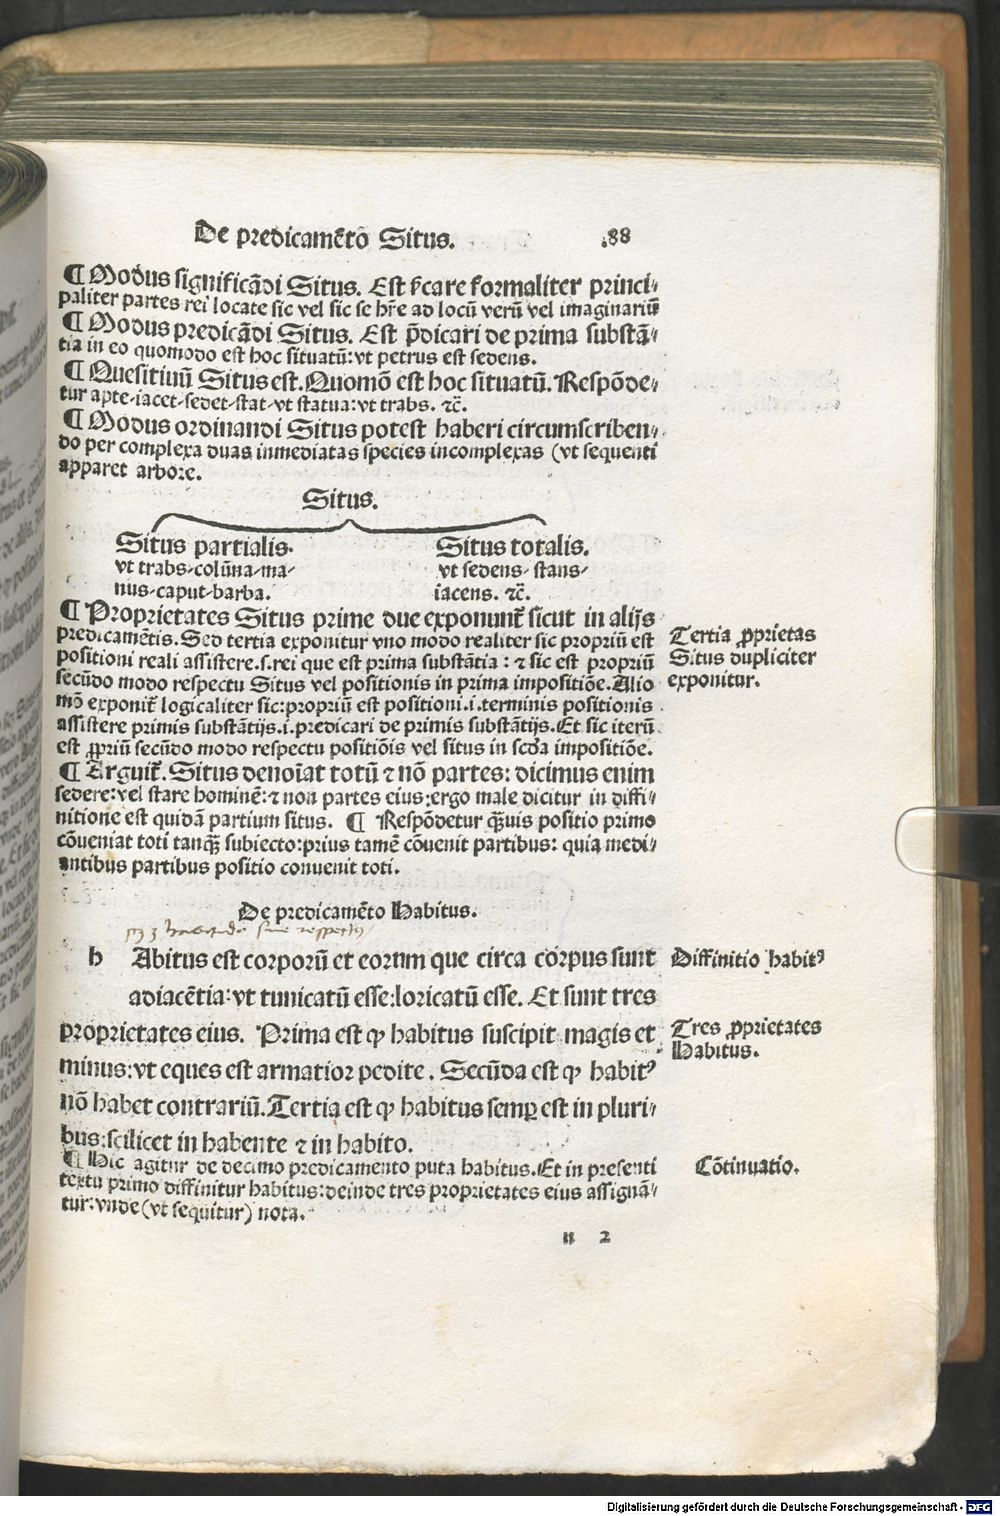 De predicamēto Situs.
.88
¶ Modus significādi Situs. Est ſ̄care formaliter princi-
paliter partes rei locate sic vel sic se hr̄e ad locū verū vel imaginariū
¶ Modus predicādi Situs. Est p̄dicari de prima substā-
tia in eo quomodo est hoc situatū: vt petrus est sedens.
¶ Quesitiuū Situs est. Quomō est hoc situatū. Respōde-
tur apte-iacet-sedet-stat-vt statua: vt trabs. ⁊c̄.
¶ Modus ordinandi Situs potest haberi circumscriben-
do per complexa duas inmediatas species incomplexas (vt sequenti
apparet arbore.
Situs.
Situs partialis.
vt trabs-colūna-ma-
nus-caput-barba.
Situs totalis.
vt sedens-stans-
iacens. ⁊c̄.
¶ Proprietates Situs prime due exponunt̄ sicut in alijs
predicamētis. Sed tertia exponitur vno modo realiter sic propriū est
positioni reali assistere.s.rei que est prima substātia: ⁊ sic est propriū
secūdo modo respectu Situs vel positionis in prima impositiōe. Alio
mō exponit̄ logicaliter sic: propriū est positioni.i.terminis positionis
assistere primis substātijs.i.predicari de primis substātijs. Et sic iterū
est ꝓpriū secūdo modo respectu positiōis vel situs in scd̄a impositiōe.
Tertia ꝓprietas
Situs dupliciter
exponitur.
¶ Arguit̄. Situs denoīat totū ⁊ nō partes: dicimus enim
sedere: vel stare hominē: ⁊ non partes eius: ergo male dicitur in diffi-
nitione est quidā partium situs. ¶ Respōdetur qꝫuis positio primo
cōueniat toti tanqꝫ subiecto: prius tamē cōuenit partibus: quia medi-
antibus partibus positio conuenit toti.
De predicamēto Habitus.
h Abitus est corporū et eorum que circa corpus sunt
adiacētia: vt tunicatū esse: loricatū esse. Et sunt tres
proprietates eius. Prima est ꝙ habitus suscipit magis et
minus: vt eques est armatior pedite. Secūda est ꝙ habitꝰ
nō habet contrariū. Tertia est ꝙ habitus semꝑ est in pluri-
bus: scilicet in habente ⁊ in habito.
Diffinitio habitꝰ
Tres ꝓprietates
Habitus.
¶ Hic agitur de decimo predicamento puta habitus. Et in presenti
textu primo diffinitur habitus: deinde tres proprietates eius assignā-
tur: vnde (vt sequitur) nota.
Cōtinuatio.
n 2
Digitalisierung gefördert durch die Deutsche Forschungsgemeinschaft - DFG